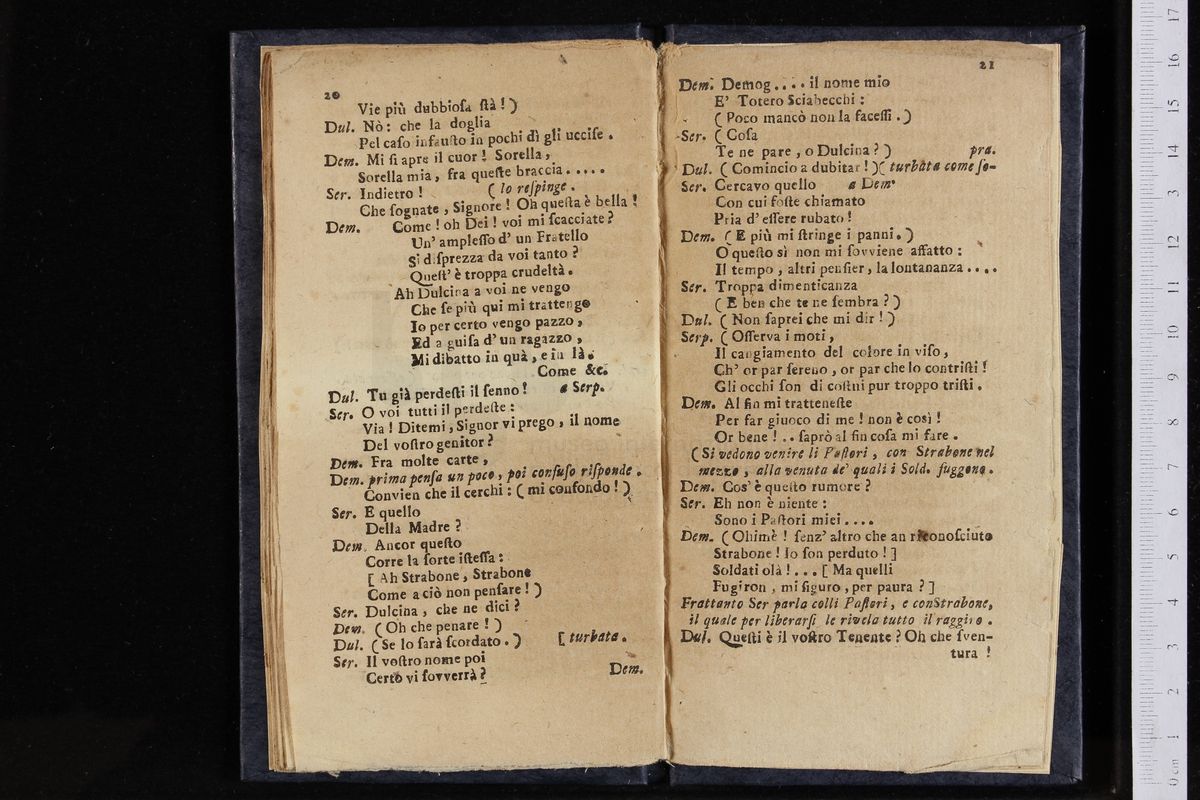 20
Vie più dubbioſa ſtà!)
Dul. Nò: che la doglia
Pel caſo infauſto in pochi dì gli ucciſe.
Dem. Mi ſi apre il cuor! Sorella,
Sorella mia, fra queſte braccia.....
Ser. Indietro! (lo reſpinge.
Che ſognate, Signore! Oh queſta è bella!
Dem. Come! oh Dei! voi mi ſcacciate?
Un' ampleſſo d' un Fratello
Si diſprezza da voi tanto?
Queſt' è troppa crudeltà.
Ah Dulcina a voi ne vengo
Che ſe più qui mi trattengo
Io per certo vengo pazzo,
Ed a guiſa d' un ragazzo,
Mi dibatto in quà, e in là.
Come &c.
Dul. Tu già perdeſti il ſenno! a Serp.
Ser. O voi tutti il perdeſte:
Via! Ditemi, Signor vi prego, il nome
Del voſtro genitor?
Dem. Fra molte carte,
Dem. prima penſa un poco, poi confuſo riſponde.
Convien che il cerchi: (mi confondo!)
Ser. E quello
Della Madre?
Dem. Ancor queſto
Corre la ſorte iſteſſa:
[Ah Strabone, Strabone
Come a ciò non penſare!)
Ser. Dulcina, che ne dici?
Dem. (Oh che penare!)
Dul. (Se lo ſarà ſcordato.) [turbata.
Ser. Il voſtro nome poi
Certo vi ſovverrà?
Dem.
21
Dem. Demog.... il nome mio
E' Totero Sciabecchi:
(Poco mancò non la faceſſi.)
Ser. (Coſa
Te ne pare, o Dulcina?) pra.
Dul. (Comincio a dubitar!)(turbata come ſo-
Ser. Cercavo quello a Dem.
Con cui foſte chiamato
Pria d' eſſere rubato!
Dem. (E più mi ſtringe i panni.)
O queſto sì non mi ſovviene affatto:
Il tempo, altri penſier, la lontananza....
Ser. Troppa dimenticanza
(E ben che te ne ſembra?)
Dul. (Non ſaprei che mi dir!)
Serp. (Oſſerva i moti,
Il cangiamento del colore in viſo,
Ch' or par ſereno, or par che lo contriſti!
Gli occhi ſon di coſtui pur troppo triſti.
Dem. Al fin mi tratteneſte
Per far giuoco di me! non è così!
Or bene!.. ſaprò al fin coſa mi fare.
(Si vedono venire li Paſtori, con Strabone nel
mezzo, alla venuta de' quali i Sold. fuggono.
Dem. Cos' è queſto rumore?
Ser. Eh non è niente:
Sono i Paſtori miei....
Dem. (Ohimè! ſenz' altro che an riconoſciuto
Strabone! Io ſon perduto!]
Soldati olà!... [Ma quelli
Fugiron, mi figuro, per paura?]
Frattanto Ser parla colli Paſtori, e conStrabone,
il quale per liberarſi le rivela tutto il raggiro.
Dul. Queſti è il voſtro Tenente? Oh che ſven-
tura!
0 cm 1 2 3 4 5 6 7 8 9 10 11 12 13 14 15 16 17